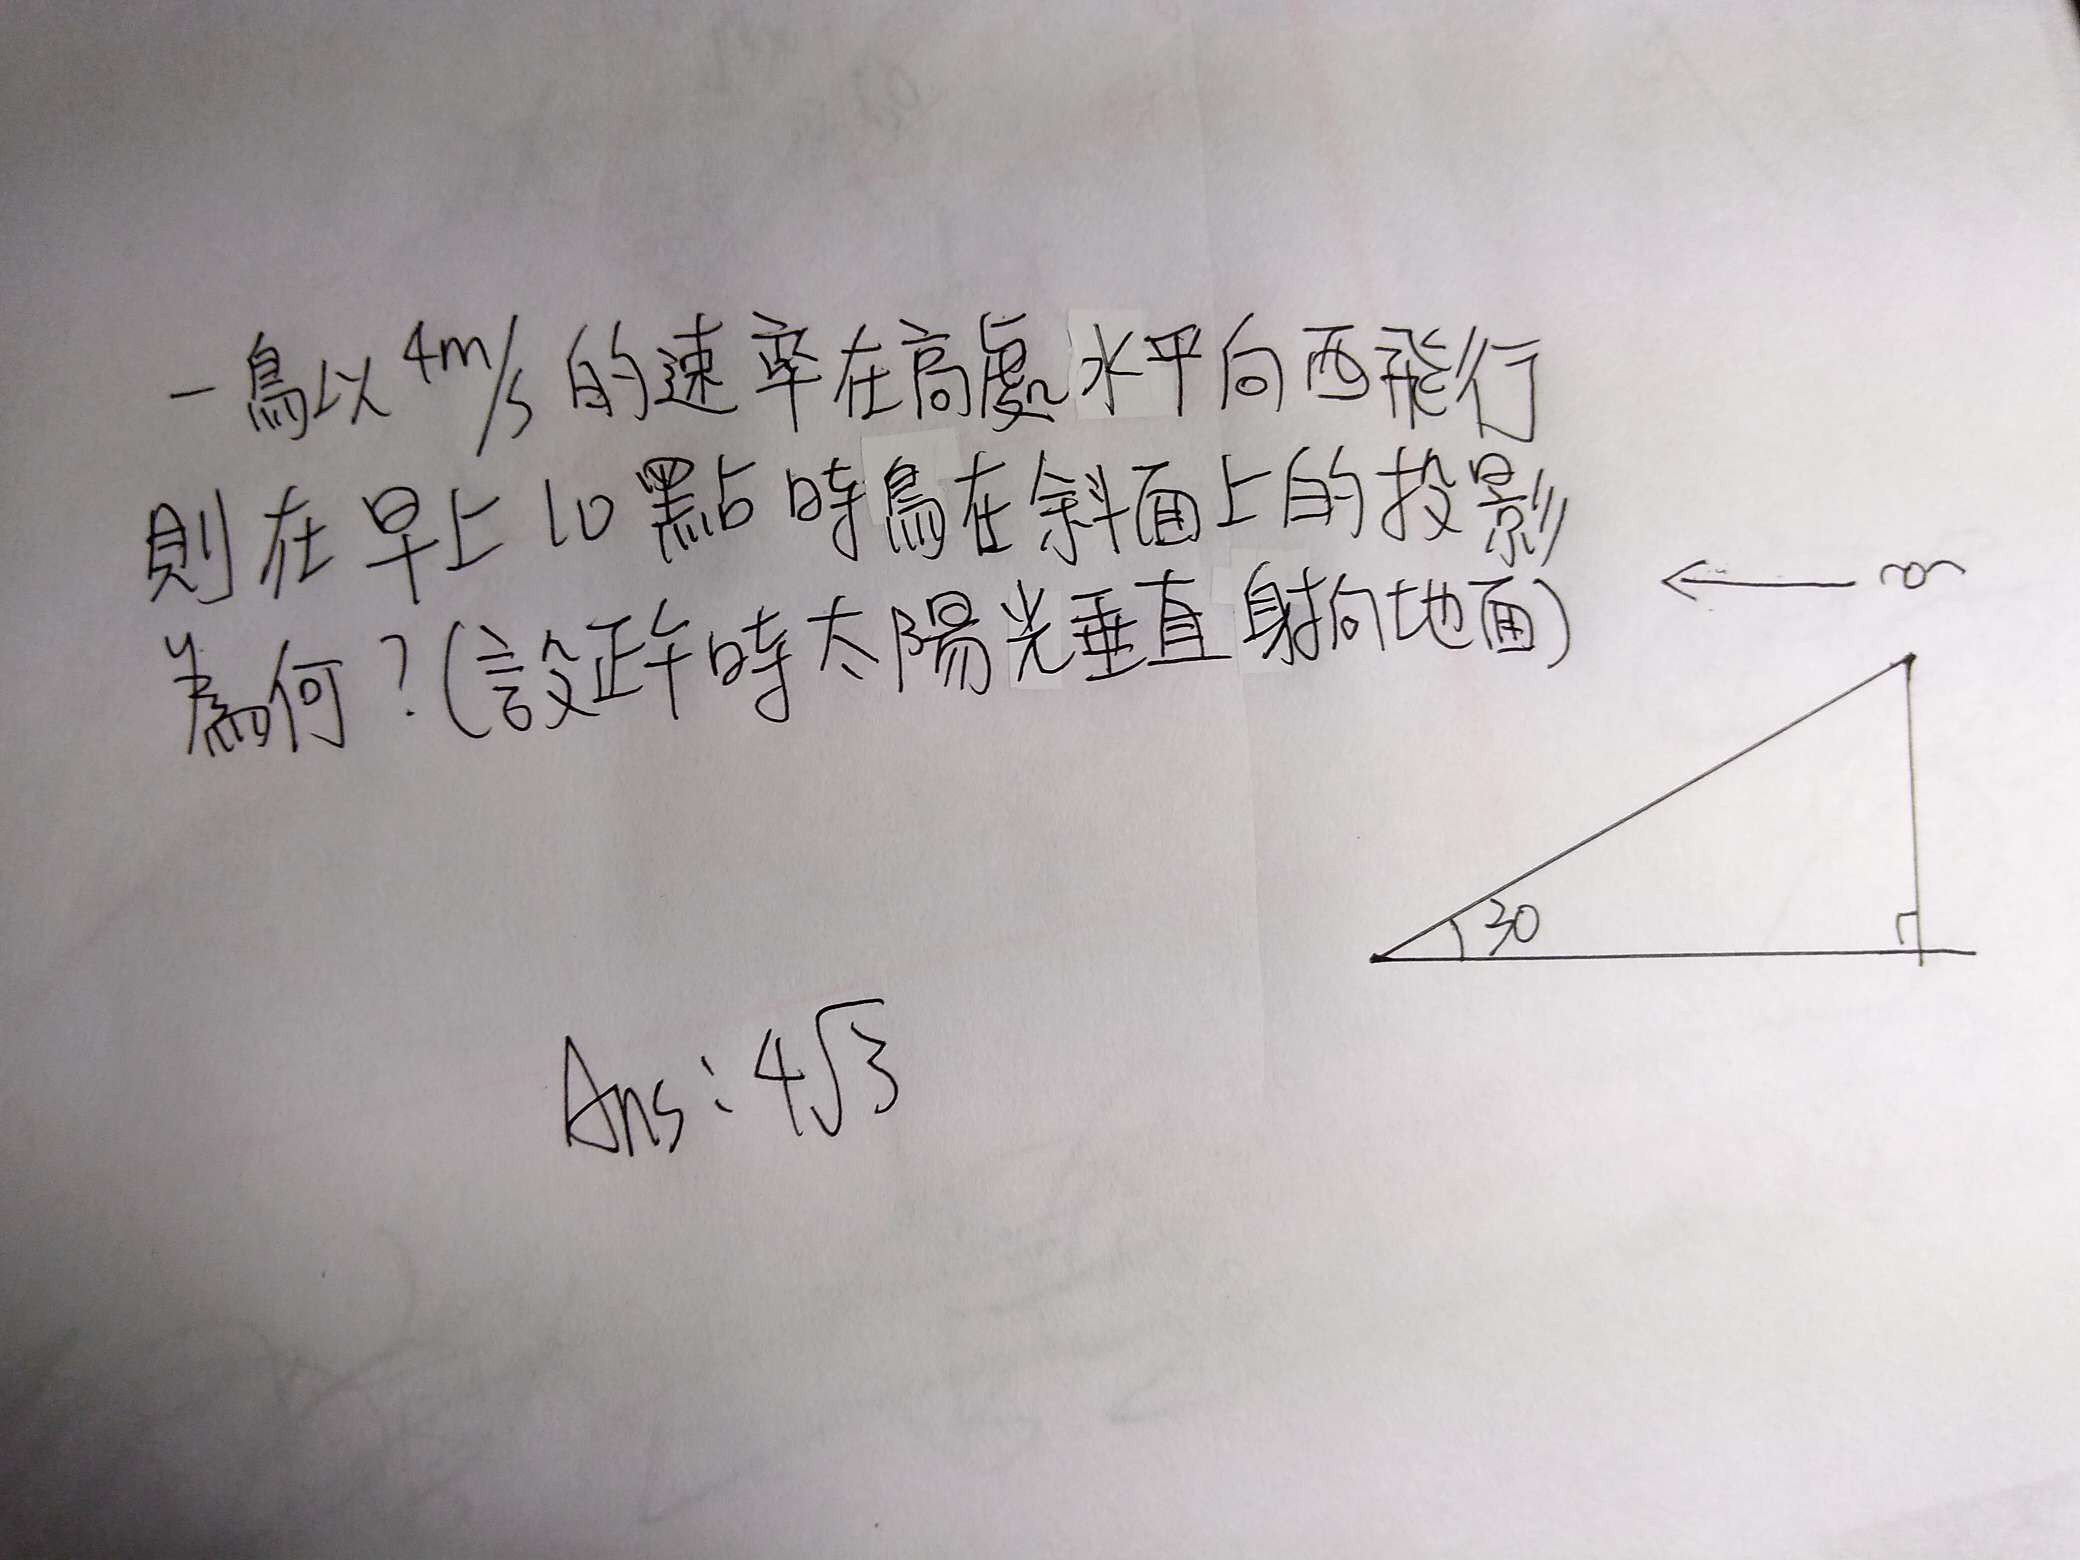 一鳥以4m/s的速率在高處水平向西飛行
則在早上10點時鳥在斜面上的投影
為何?(設正午時太陽光垂直射向地面)
30
Ans:4√3